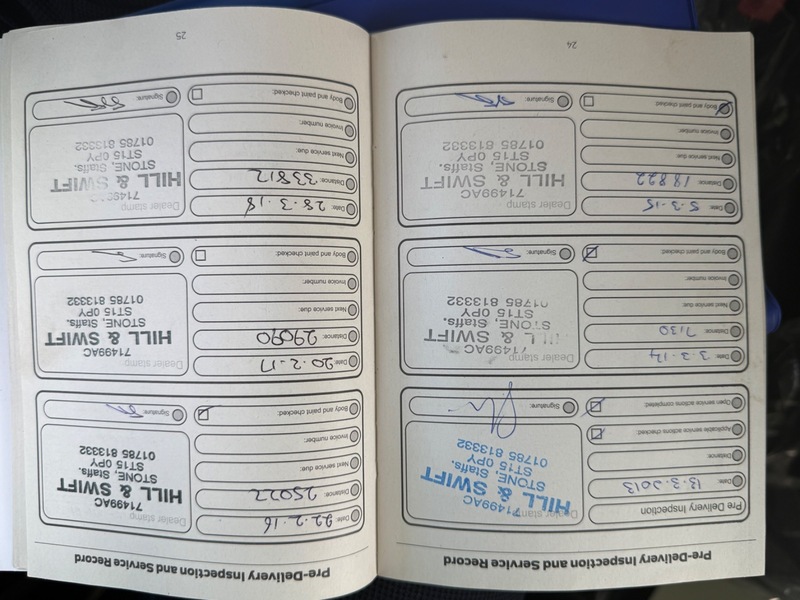 Pre-Delivery Inspection and Service Record
Pre Delivery Inspection
Date: 13.3.2013
Distance:
Applicable service actions checked:
Open service actions completed:
Dealer stamp
71499AC
HILL & SWIFT
STONE, Staffs.
ST15 0PY
01785 813332
Signature:
Date: 3.3.14
Distance: 7130
Next service due:
Invoice number:
Body and paint checked:
Dealer stamp
71499AC
HILL & SWIFT
STONE, Staffs.
ST15 0PY
01785 813332
Signature:
Date: 5.3.15
Distance: 18822
Next service due:
Invoice number:
Body and paint checked:
Dealer stamp
71499AC
HILL & SWIFT
STONE, Staffs.
ST15 0PY
01785 813332
Signature:
24
Pre-Delivery Inspection and Service Record
Date: 22.2.16
Distance: 25022
Next service due:
Invoice number:
Body and paint checked:
Dealer stamp
71499AC
HILL & SWIFT
STONE, Staffs.
ST15 0PY
01785 813332
Signature:
Date: 20.2.17
Distance: 29090
Next service due:
Invoice number:
Body and paint checked:
Dealer stamp
71499AC
HILL & SWIFT
STONE, Staffs.
ST15 0PY
01785 813332
Signature:
Date: 28.3.18
Distance: 33812
Next service due:
Invoice number:
Body and paint checked:
Dealer stamp
HILL & SWIFT
STONE, Staffs.
ST15 0PY
01785 813332
Signature:
25